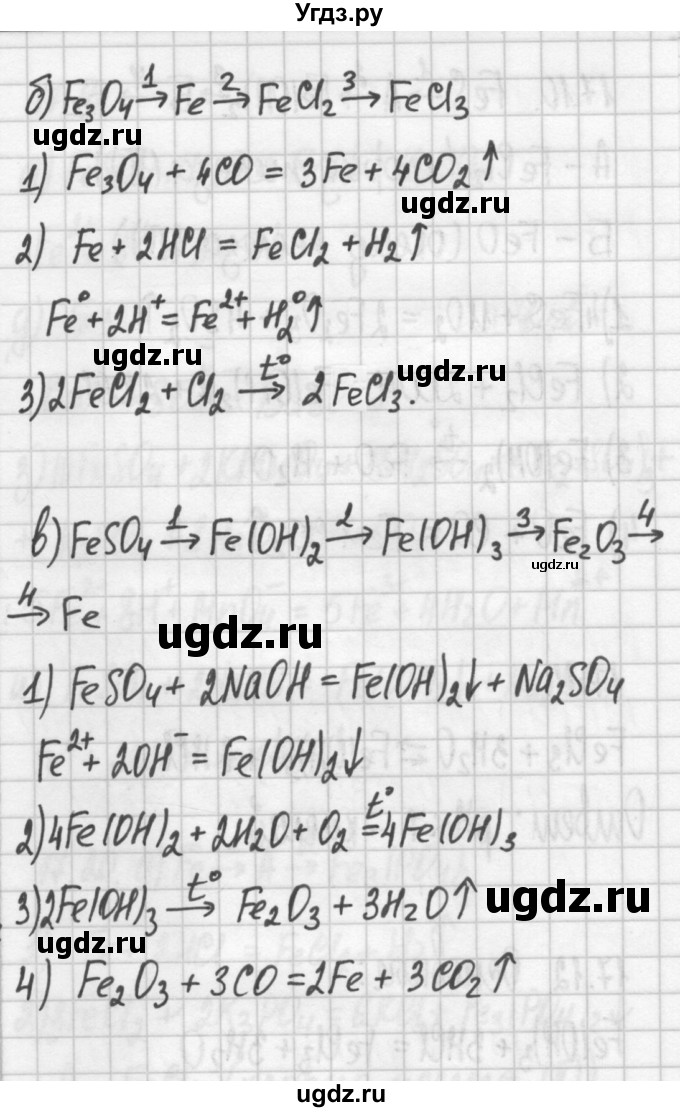 Угдз.ру
б) Fe₃O₄ →¹ Fe →² FeCl₂ →³ FeCl₃
ugdz.ru
1) Fe₃O₄ + 4CO = 3Fe + 4CO₂↑
ugdz.ru
2) Fe + 2HCl = FeCl₂ + H₂↑
Fe⁰ + 2H⁺ = Fe²⁺ + H₂⁰↑
ugdz.ru
ugdz.ru
3) 2FeCl₂ + Cl₂ →t° 2FeCl₃.
в) FeSO₄ →¹ Fe(OH)₂ →² Fe(OH)₃ →³ Fe₂O₃ →⁴
ugdz.ru
→⁴ Fe
ugdz.ru
1) FeSO₄ + 2NaOH = Fe(OH)₂↓ + Na₂SO₄
Fe²⁺ + 2OH⁻ = Fe(OH)₂↓
2) 4Fe(OH)₂ + 2H₂O + O₂ =t° 4Fe(OH)₃
3) 2Fe(OH)₃ →t° Fe₂O₃ + 3H₂O↑
ugdz.ru
ugdz.ru
4) Fe₂O₃ + 3CO = 2Fe + 3CO₂↑
ugdz.ru